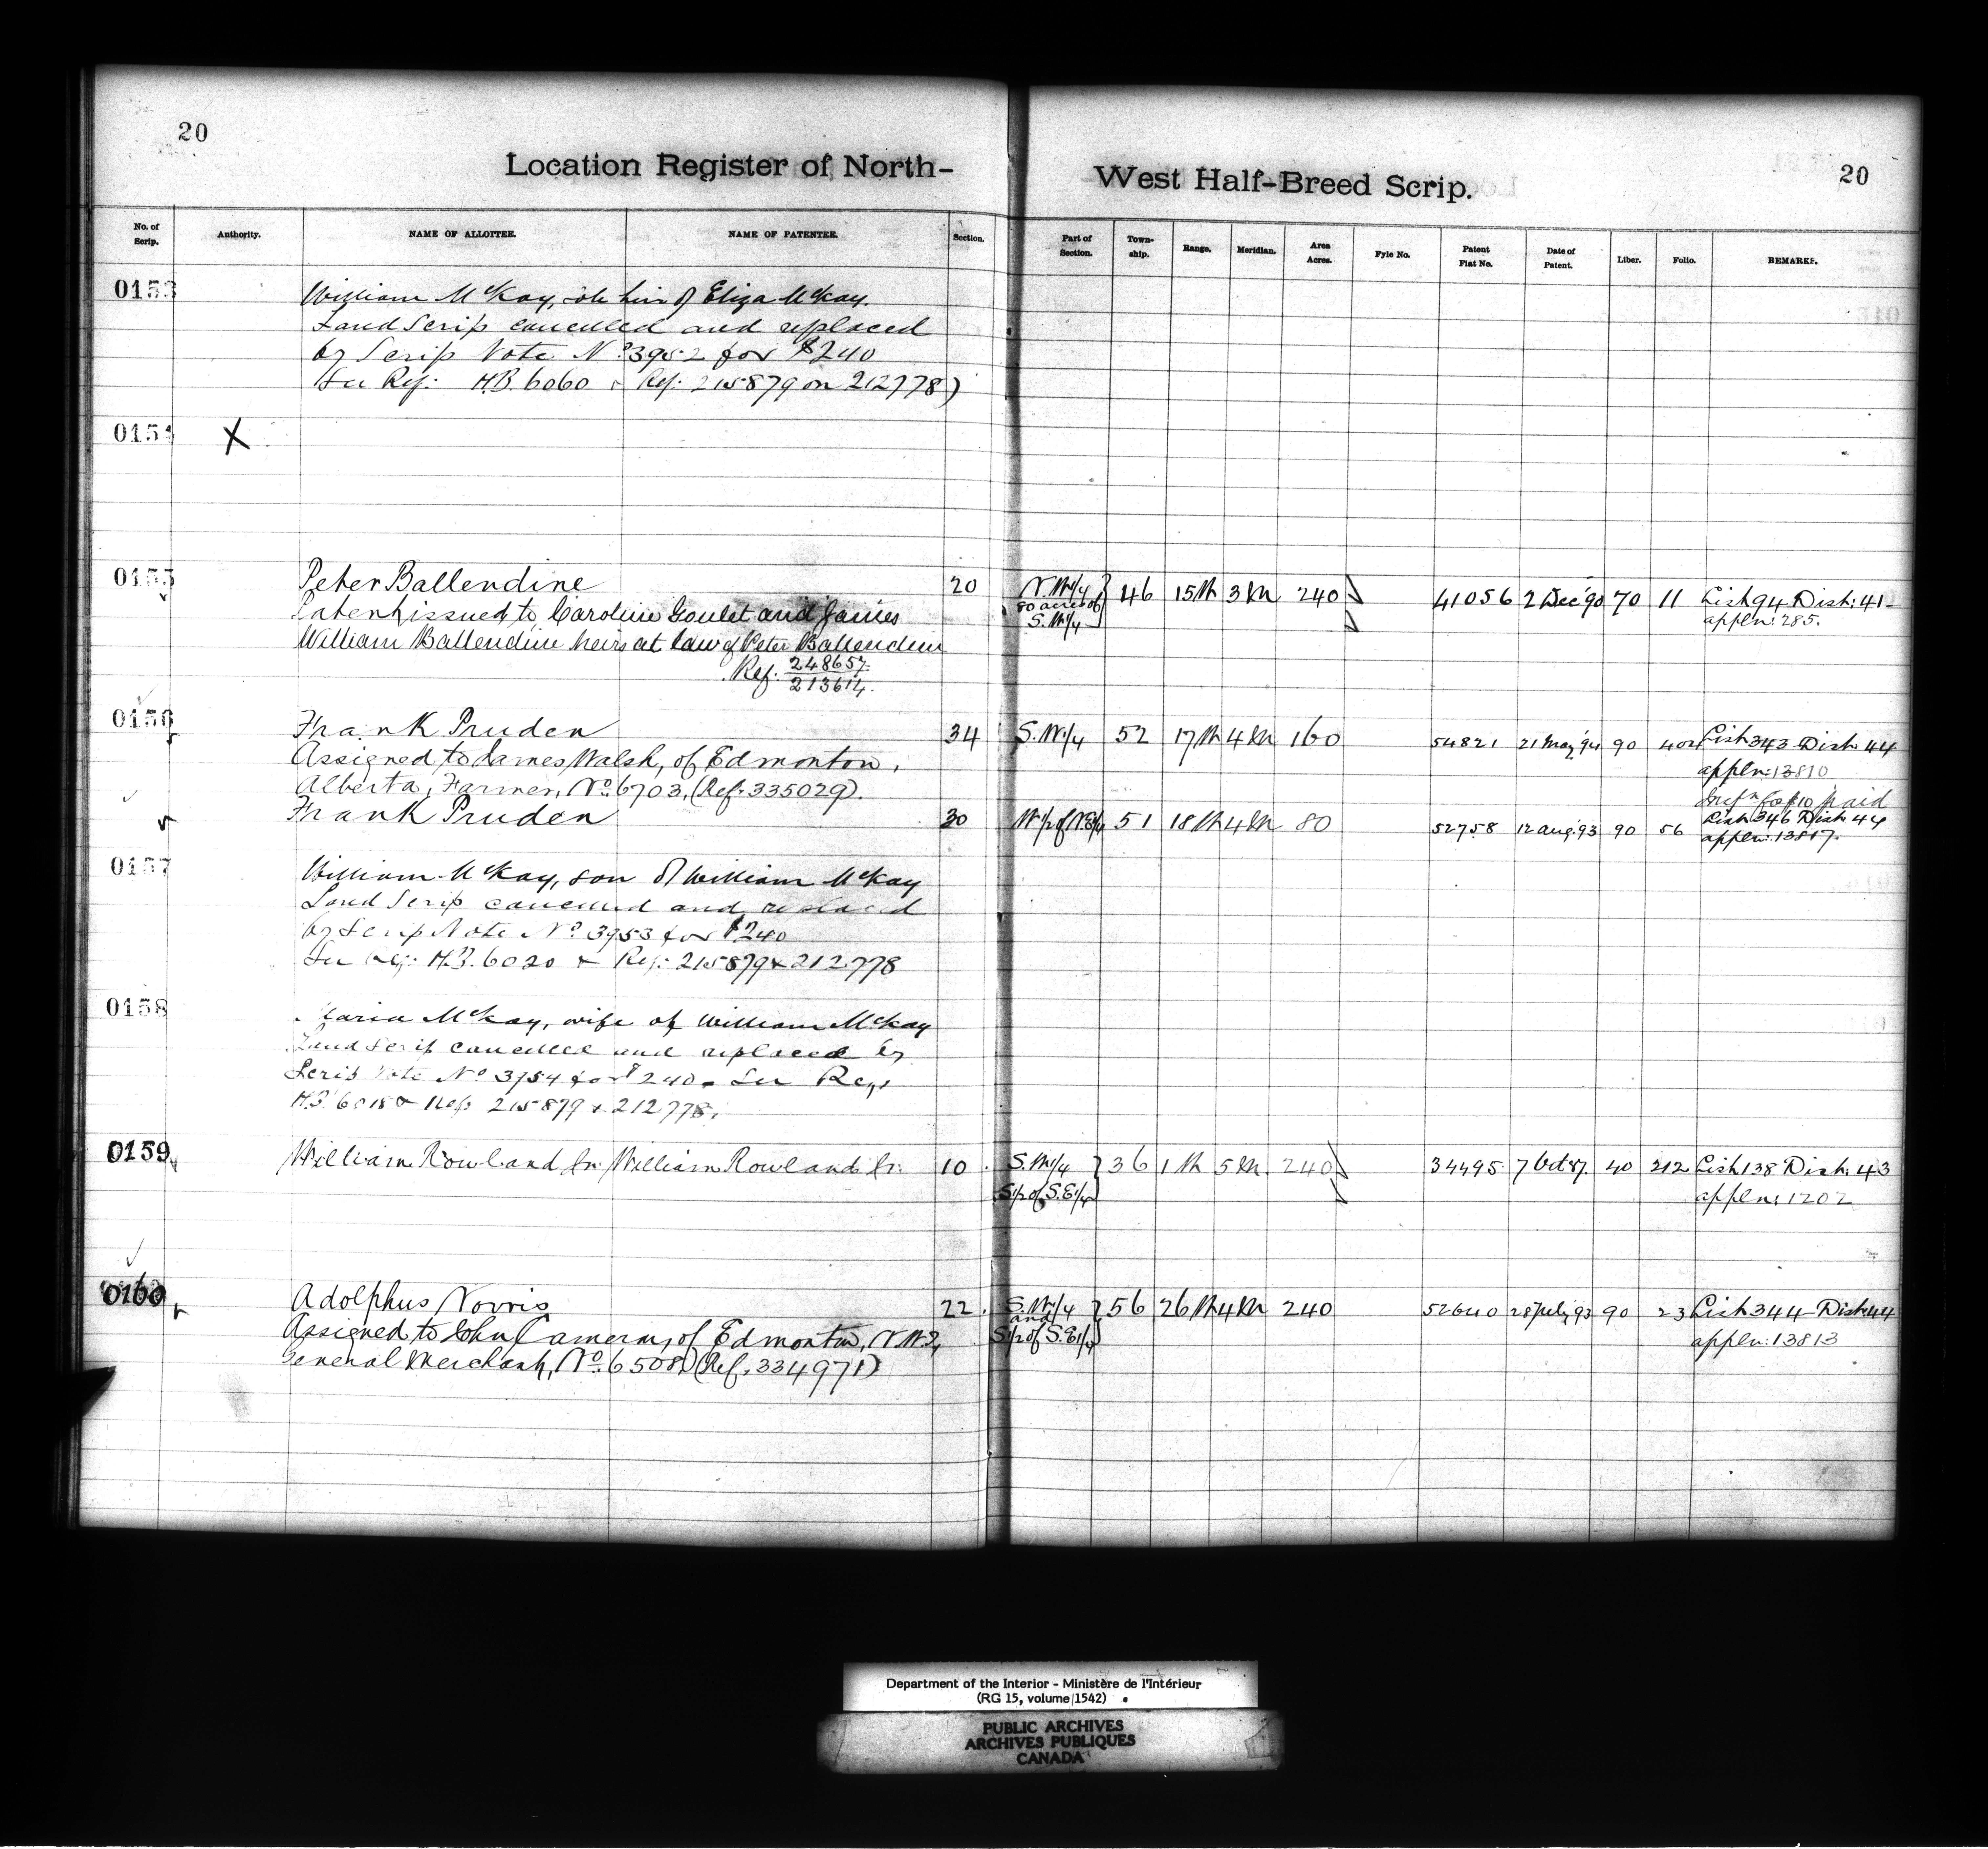 20
20
Location Register of North-West Half-Breed Scrip.
No. of Scrip. Authority. NAME OF ALLOTTEE. NAME OF PATENTEE. Section. Part of Section. Town-ship. Range. Meridian. Area Acres. Fyle No. Patent Fiat No. Date of Patent. Liber. Folio. REMARKS.
0153 William McKay, sole heir of Eliza McKay.
Land Scrip cancelled and replaced
by Scrip Note No. 3952 for $240
(See Ref: H.B. 6060 & Ref: 215879 on 212778)
0154 X
0155 Peter Ballendine 20 N.W1/4 46 15 W 3 M 240 41056 2 Dec '90 70 11 List 94 Dist: 41
80 acres of appln: 285.
Patent issued to Caroline Goulet and James S.W1/4
William Ballendine heirs at law of Peter Ballendine
Ref. 248657
213614.
0156 Frank Pruden 34 S.W.1/4 52 17 W 4 M 160 54821 21 May '94 90 404 List 343 Dist 44
Assigned to James Walsh, of Edmonton, appln: 13810
Alberta, Farmer, No. 6703, (Ref: 335029). $10 paid
Frank Pruden 30 W1/2 of N.E1/4 51 18 W 4 M 80 52758 12 Aug. 93 90 56 List 346 Dist 44
appln: 13817.
0157 William McKay, son of William McKay
Land Scrip cancelled and replaced
by Scrip Note No. 3953 for $240
See Ref: H.B. 6020 & Ref: 215879 & 212778
0158 Maria McKay, wife of William McKay
Land Scrip cancelled and replaced by
Scrip Note No. 3954 for $240. See Ref:
H.B. 6018 & Ref: 215879 & 212778.
0159 William Rowland Sr. William Rowland Sr. 10 S.W1/4 36 1 W 5 M. 240 34495 7 Oct 87. 40 212 List 138 Dist: 43
S1/2 of S.E1/4 appln: 1202
0160 Adolphus Norris 22. S.W.1/4 56 26 W 4 M 240 52640 28 July, 93 90 23 List 344 Dist 44
and
Assigned to John Cameron, of Edmonton, N.W.T., S1/2 of S.E1/4 appln: 13813
General Merchant, No. 6508. (Ref. 334971)
Department of the Interior - Ministère de l'Intérieur
(RG 15, volume 1542)
PUBLIC ARCHIVES
ARCHIVES PUBLIQUES
CANADA